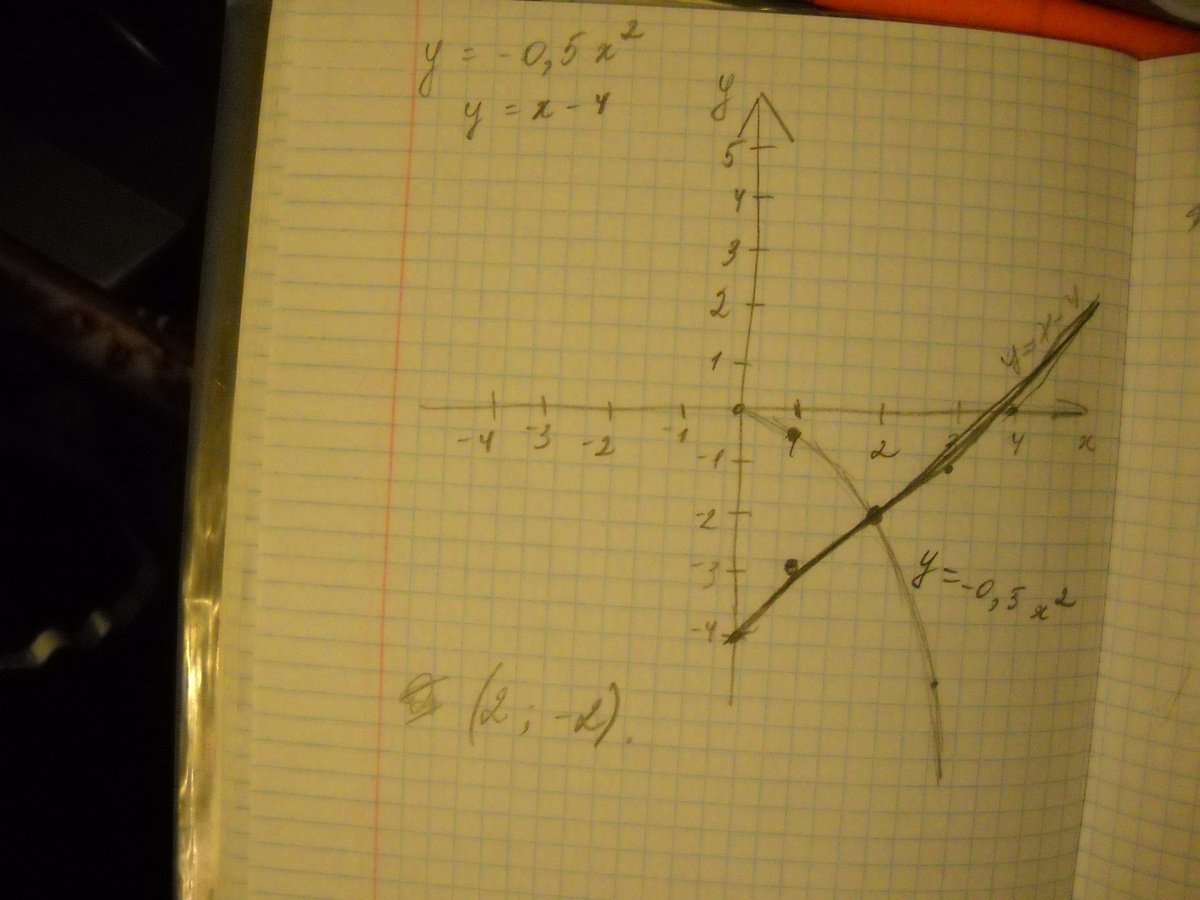 y = -0,5x²
y = x - 4
y
5
4
3
2
1
-4 -3 -2 -1 1 2 3 4 x
-1
-2
-3
-4
y = x - 4
y = -0,5x²
(2; -2).